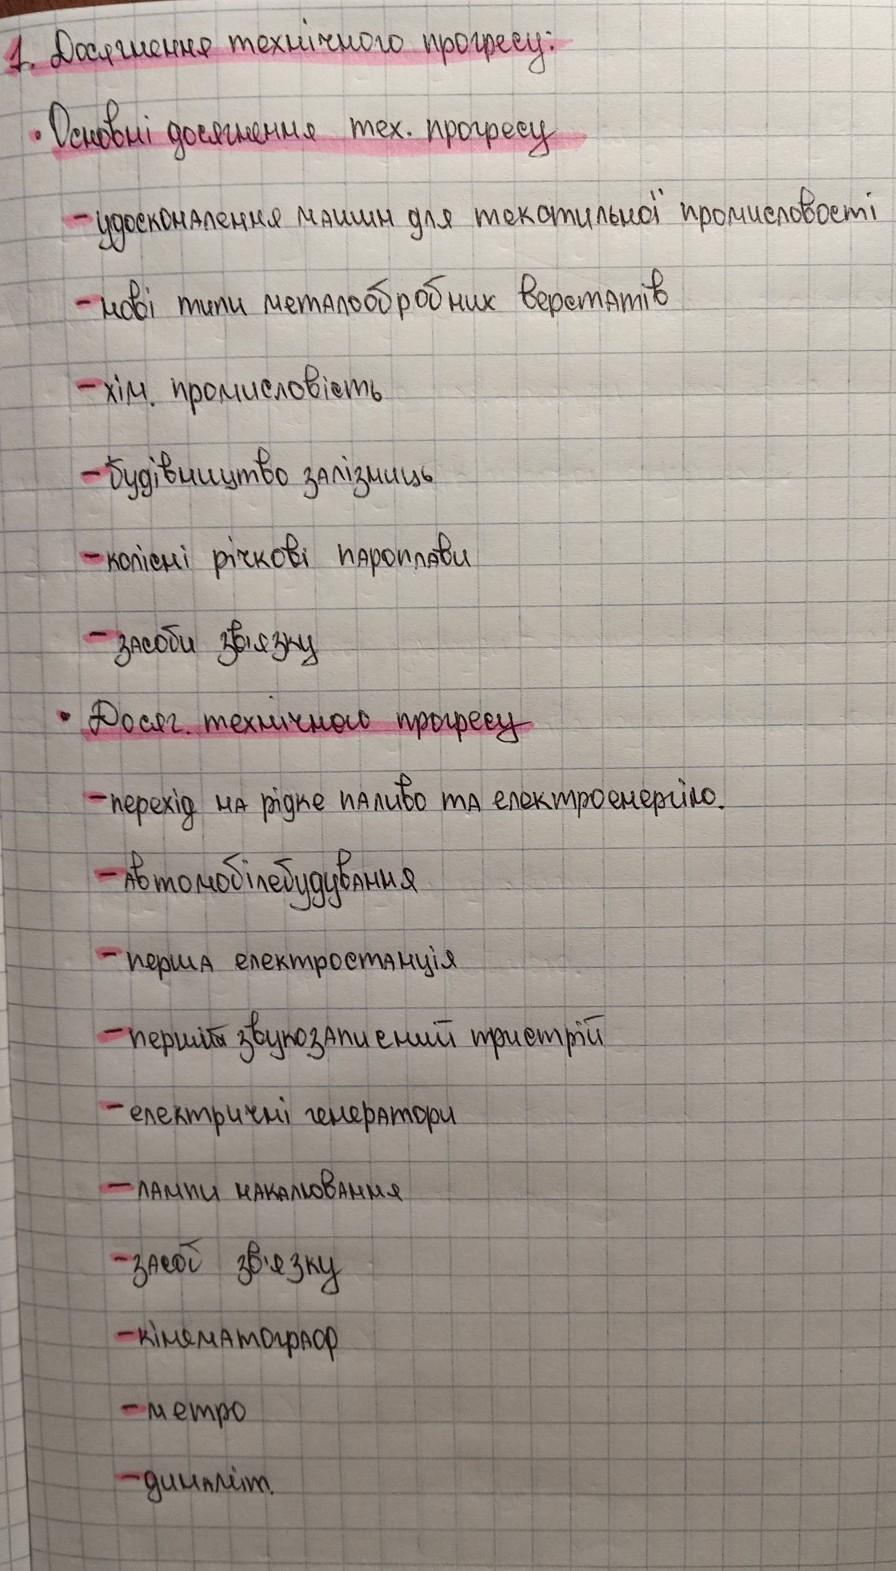 1. Досягнення технічного прогресу:
• Основні досягнення тех. прогресу
- удосконалення машин для текстильної промисловості
- нові типи металообробних верстатів
- хім. промисловість
- будівництво залізниць
- колісні річкові пароплави
- засоби зв'язку
• Досяг. технічного прогресу
- перехід на рідке паливо та електроенергію.
- автомобілебудування
- перша електростанція
- перший звукозаписний пристрій
- електричні генератори
- лампи накалювання
- засоб зв'язку
- кінематограф
- метро
- динаміт.